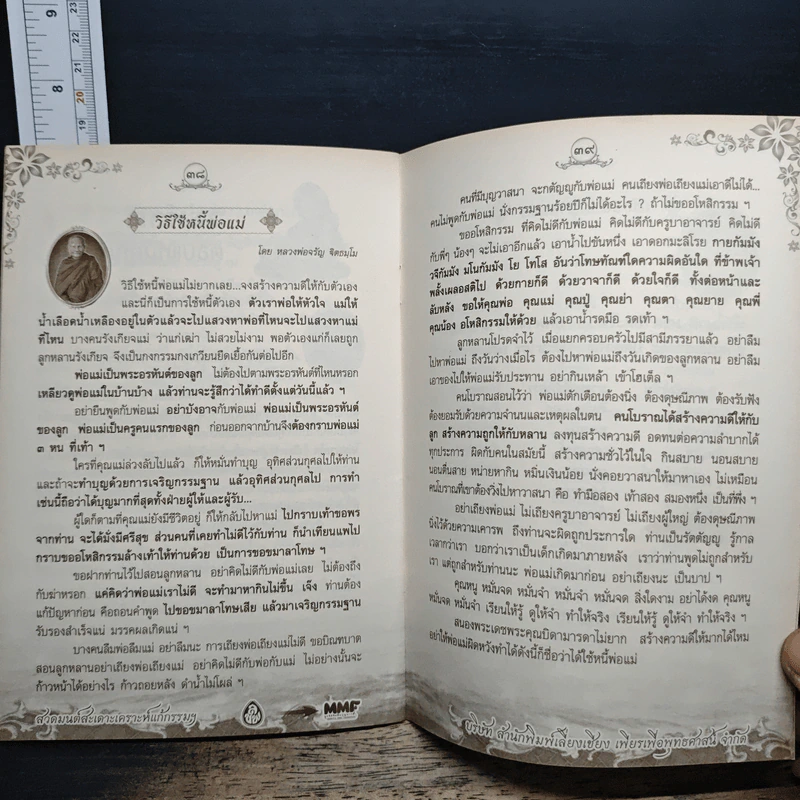 8
9
19
20
21
22
23
๓๘
วิธีใช้หนี้พ่อแม่
โดย หลวงพ่อจรัญ ฐิตธมฺโม
วิธีใช้หนี้พ่อแม่ไม่ยากเลย...จงสร้างความดีให้กับตัวเอง
และนี่ก็เป็นการใช้หนี้ตัวเอง ตัวเราพ่อให้หัวใจ แม่ให้
น้ำเลือดน้ำเหลืองอยู่ในตัวแล้วจะไปแสวงหาพ่อที่ไหนจะไปแสวงหาแม่
ที่ไหน บางคนรังเกียจแม่ ว่าแก่เฒ่า ไม่สวยไม่งาม พอตัวเองแก่ก็เลยถูก
ลูกหลานรังเกียจ จึงเป็นกงกรรมกงเกวียนยืดเยื้อกันต่อไปอีก
พ่อแม่เป็นพระอรหันต์ของลูก ไม่ต้องไปตามพระอรหันต์ที่ไหนหรอก
เหลียวดูพ่อแม่ในบ้านบ้าง แล้วท่านจะรู้สึกว่าได้ทำดีตั้งแต่วันนี้แล้ว ฯ
อย่ายืนพูดกับพ่อแม่ อย่าบังอาจกับพ่อแม่ พ่อแม่เป็นพระอรหันต์
ของลูก พ่อแม่เป็นครูคนแรกของลูก ก่อนออกจากบ้านจึงต้องกราบพ่อแม่
๓ หน ที่เท้า ฯ
ใครที่คุณแม่ล่วงลับไปแล้ว ก็ให้หมั่นทำบุญ อุทิศส่วนกุศลไปให้ท่าน
และถ้าจะทำบุญด้วยการเจริญกรรมฐาน แล้วอุทิศส่วนกุศลไป การทำ
เช่นนี้ถือว่าได้บุญมากที่สุดทั้งฝ่ายผู้ให้และผู้รับ...
ผู้ใดก็ตามที่คุณแม่ยังมีชีวิตอยู่ ก็ให้กลับไปหาแม่ ไปกราบเท้าขอพร
จากท่าน จะได้มั่งมีศรีสุข ส่วนคนที่เคยทำไม่ดีไว้กับท่าน ก็นำเทียนแพไป
กราบขออโหสิกรรมล้างเท้าให้ท่านด้วย เป็นการขอขมาลาโทษ ฯ
ขอฝากท่านไว้ไปสอนลูกหลาน อย่าคิดไม่ดีกับพ่อแม่เลย ไม่ต้องถึง
กับฆ่าหรอก แค่คิดว่าพ่อแม่เราไม่ดี จะทำมาหากินไม่ขึ้น เจ๊ง ท่านต้อง
แก้ปัญหาก่อน คือถอนคำพูด ไปขอขมาลาโทษเสีย แล้วมาเจริญกรรมฐาน
รับรองสำเร็จแน่ มรรคผลเกิดแน่ ฯ
บางคนลืมพ่อลืมแม่ อย่าลืมนะ การเถียงพ่อเถียงแม่ไม่ดี ขอบิณฑบาต
สอนลูกหลานอย่าเถียงพ่อเถียงแม่ อย่าคิดไม่ดีกับพ่อกับแม่ ไม่อย่างนั้นจะ
ก้าวหน้าได้อย่างไร ก้าวถอยหลัง ดำน้ำไม่โผล่ ฯ
สวดมนต์สะเดาะเคราะห์แก้กรรมฯ
MMF
๓๙
คนที่มีบุญวาสนา จะกตัญญูกับพ่อแม่ คนเถียงพ่อเถียงแม่เอาดีไม่ได้...
คนไม่พูดกับพ่อแม่ นั่งกรรมฐานร้อยปีก็ไม่ได้อะไร ? ถ้าไม่ขออโหสิกรรม ฯ
ขออโหสิกรรม ที่คิดไม่ดีกับพ่อแม่ คิดไม่ดีกับครูบาอาจารย์ คิดไม่ดี
กับพี่ๆ น้องๆ จะไม่เอาอีกแล้ว เอาน้ำไปขันหนึ่ง เอาดอกมะลิโรย กายกัมมัง
วจีกัมมัง มโนกัมมัง โย โทโส อันว่าโทษทัณฑ์ใดความผิดอันใด ที่ข้าพเจ้า
พลั้งเผลอสติไป ด้วยกายก็ดี ด้วยวาจาก็ดี ด้วยใจก็ดี ทั้งต่อหน้าและ
ลับหลัง ขอให้คุณพ่อ คุณแม่ คุณปู่ คุณย่า คุณตา คุณยาย คุณพี่
คุณน้อง อโหสิกรรมให้ด้วย แล้วเอาน้ำรดมือ รดเท้า ฯ
ลูกหลานโปรดจำไว้ เมื่อแยกครอบครัวไปมีสามีภรรยาแล้ว อย่าลืม
ไปหาพ่อแม่ ถึงวันว่างเมื่อไร ต้องไปหาพ่อแม่ถึงวันเกิดของลูกหลาน อย่าลืม
เอาของไปให้พ่อแม่รับประทาน อย่ากินเหล้า เข้าโฮเต็ล ฯ
คนโบราณสอนไว้ว่า พ่อแม่ตักเตือนต้องนิ่ง ต้องดุษณีภาพ ต้องรับฟัง
ต้องยอมรับด้วยความจำนนและเหตุผลในตน คนโบราณได้สร้างความดีให้กับ
ลูก สร้างความถูกให้กับหลาน ลงทุนสร้างความดี อดทนต่อความลำบากได้
ทุกประการ ผิดกับคนในสมัยนี้ สร้างความชั่วไว้ในใจ กินสบาย นอนสบาย
นอนตื่นสาย หน่ายหากิน หมิ่นเงินน้อย นั่งคอยวาสนาให้มาหาเอง ไม่เหมือน
คนโบราณที่เขาต้องวิ่งไปหาวาสนา คือ ทำมือสอง เท้าสอง สมองหนึ่ง เป็นที่พึ่ง ฯ
อย่าเถียงพ่อแม่ ไม่เถียงครูบาอาจารย์ ไม่เถียงผู้ใหญ่ ต้องดุษณีภาพ
นิ่งไว้ด้วยความเคารพ ถึงท่านจะผิดถูกประการใด ท่านเป็นรัตตัญญู รู้กาล
เวลากว่าเรา บอกว่าเราเป็นเด็กเกิดมาภายหลัง เราว่าท่านพูดไม่ถูกสำหรับ
เรา แต่ถูกสำหรับท่านนะ พ่อแม่เกิดมาก่อน อย่าเถียงนะ เป็นบาป ฯ
คุณหนู หมั่นจด หมั่นจำ หมั่นจำ หมั่นจด สิ่งใดงาม อย่าได้งด คุณหนู
หมั่นจด หมั่นจำ เรียนให้รู้ ดูให้จำ ทำให้จริง เรียนให้รู้ ดูให้จำ ทำให้จริง ฯ
สนองพระเดชพระคุณบิดามารดาไม่ยาก สร้างความดีให้มากได้ไหม
อย่าให้พ่อแม่ผิดหวังทำได้ดังนี้ก็ชื่อว่าได้ใช้หนี้พ่อแม่
บริษัท สำนักพิมพ์เลี่ยงเชียง เพียรเพื่อพุทธศาสน์ จำกัด